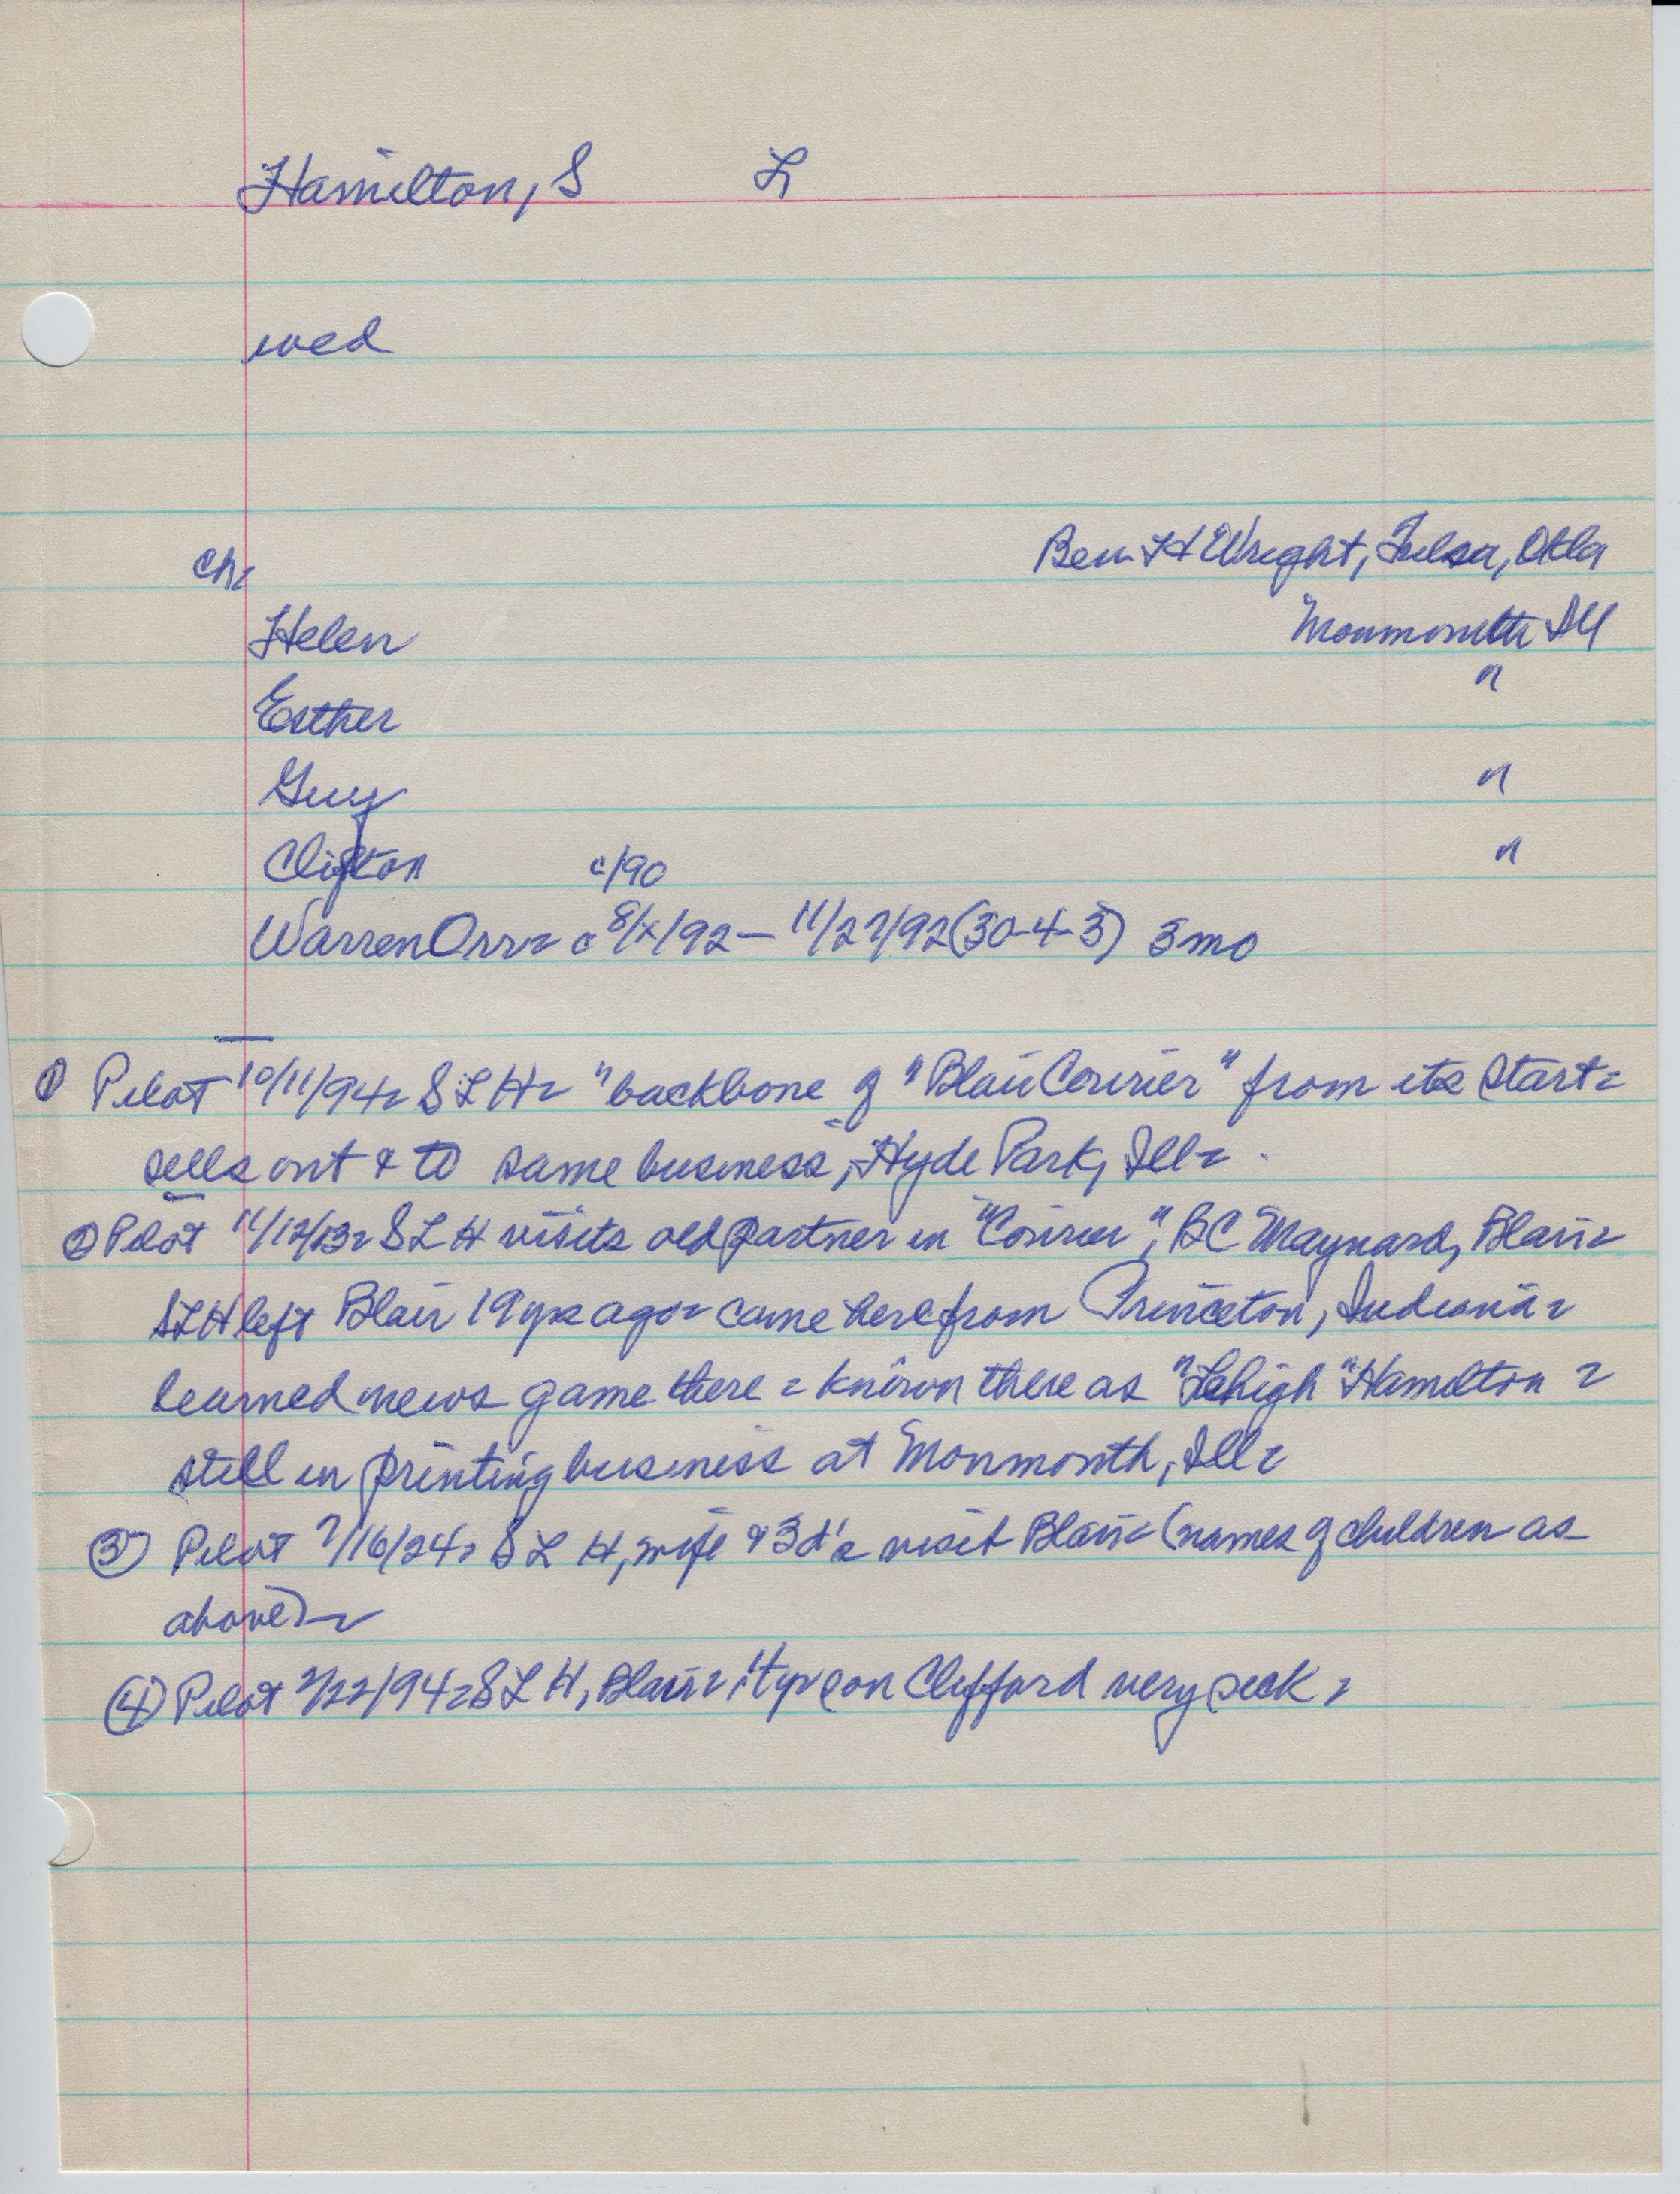 Hamilton, S L
wed
ch: Ben H Wright, Tulsa, Okla
Helen Monmouth Ill
Esther "
Guy "
Clifton c/90 "
Warren Orr= c 8/x/92 — 11/27/92 (30-4-3) 3 mo
① Pilot 10/11/94= S L H= "backbone of "Blair Courier" from its start=
sells out & to same business, Hyde Park, Ill=
② Pilot 11/12/13= S L H visits old partner in "Courier", BC Maynard, Blair=
SLH left Blair 19 yrs ago= came here from Princeton, Indiana=
learned news game there= known there as "Lehigh" Hamilton=
still in printing business at Monmouth, Ill=
③ Pilot 7/16/24= S L H, wife & 3 d's visit Blair= (names of children as
above)=
④ Pilot 2/22/94= S L H, Blair= 4 yr son Clifford very sick=